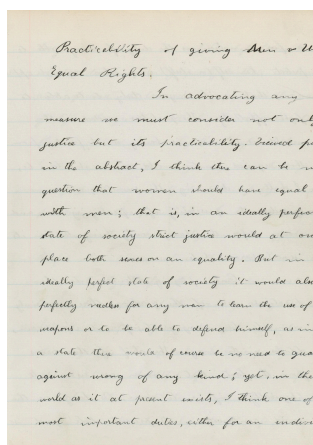 Practicability of giving Men & W
Equal Rights.
In advocating any
measure we must consider not only
justice but its practicability. Viewed
in the abstract, I think there can be
question that women should have equal
with men; that is, in an ideally perfec
state of society strict justice would at on
place both sexes on an equality. But in
ideally perfect state of society it would also
perfectly needless for any man to learn the use of
weapons or to be able to defend himself, as in
a state there would of course be no need to gua
against wrong of any kind; yet, in the
world as it at present exists, I think one of
most important duties, either for an indivi